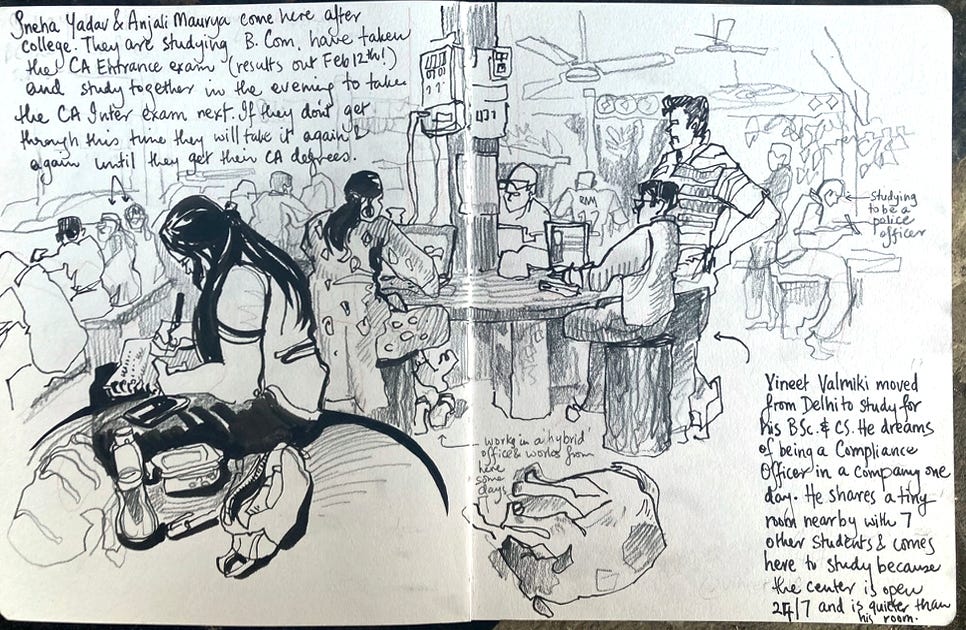 Sneha Yadav & Anjali Maurya come here after
college. They are studying B. Com, have taken
the CA Entrance exam (results out Feb 12th!)
and study together in the evening to take
the CA Inter exam next. If they dont get
through this time they will take it again &
again until they get their CA degrees.
RAM
studying
to be a
police
officer
works in a 'hybrid'
office & works from
here
some
days
Vineet Valmiki moved
from Delhi to study for
his BSc. & CS. He dreams
of being a Compliance
Officer in a company one
day. He shares a tiny
room nearby with 7
other students & comes
here to study because
the center is open
24/7 and is quieter than
his room.